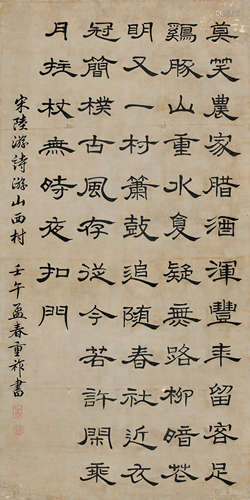 莫笑農家腊酒渾豐年留客足
鷄豚山重水复疑無路柳暗花
明又一村簫鼓追随春社近衣
冠簡樸古風存從今若許閑乘
月拄杖無時夜扣門
宋陸游詩游山西村 壬午孟春重祚書